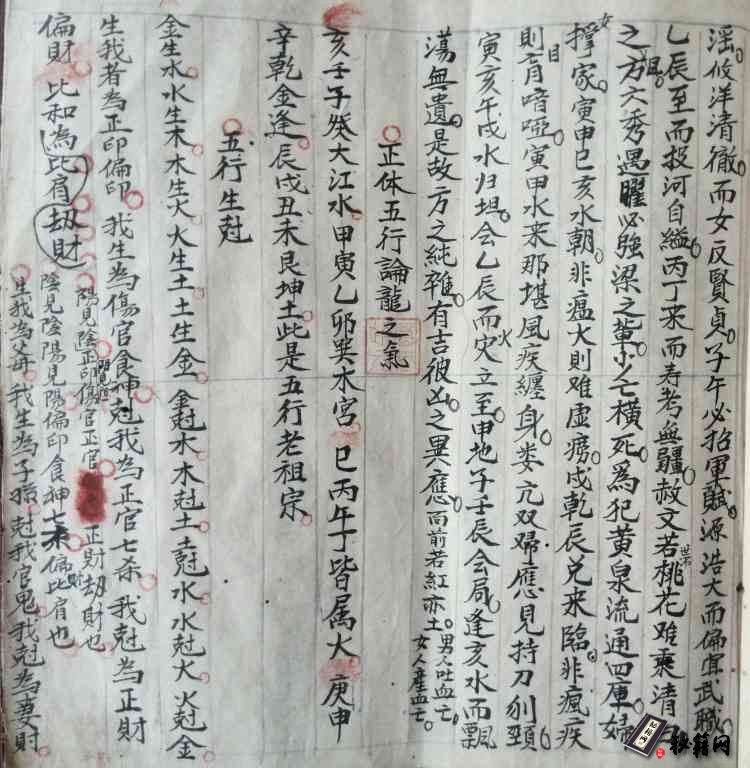 滛攸洋清徹而女反賢貞子午必招軍賊源浩大而偏宜武職
乙辰至而投河自縊丙丁来而寿考無疆赦文若桃花难乘清
之方六秀遇曜必強梁之輩少亡横死為犯黄泉流通四庫婦女
撑家寅申巳亥水朝非瘟火則难虚痨戌乾辰兌来臨非瘋疾
則盲喑啞寅甲水来那堪風疾纏身娄亢双婦應見持刀刎頸
寅亥午戌水归坦会乙辰而火灾立至申地子壬辰会局逢亥水而飄
蕩無遺是故方之純雜有吉彼凶之異應面前若紅赤土男人吐血亡女人産血亡
正体五行論龍之氣
亥壬子癸大江水甲寅乙卯巽木宮巳丙午丁皆属火庚申
辛乾金逢辰戌丑未艮坤土此是五行老祖宗
五行生尅
金生水水生木木生火火生土土生金金尅木木尅土土尅水水尅火火尅金
生我者為正印偏印我生為傷官食神尅我為正官七杀我尅為正財
偏財比和為比肩劫財
陽見陰正印傷官正官正財劫財也
陰見陰陽見陽偏印食神七杀偏財比肩也
生我為父母我生為子孫尅我官鬼我尅為妻財
秘籍网